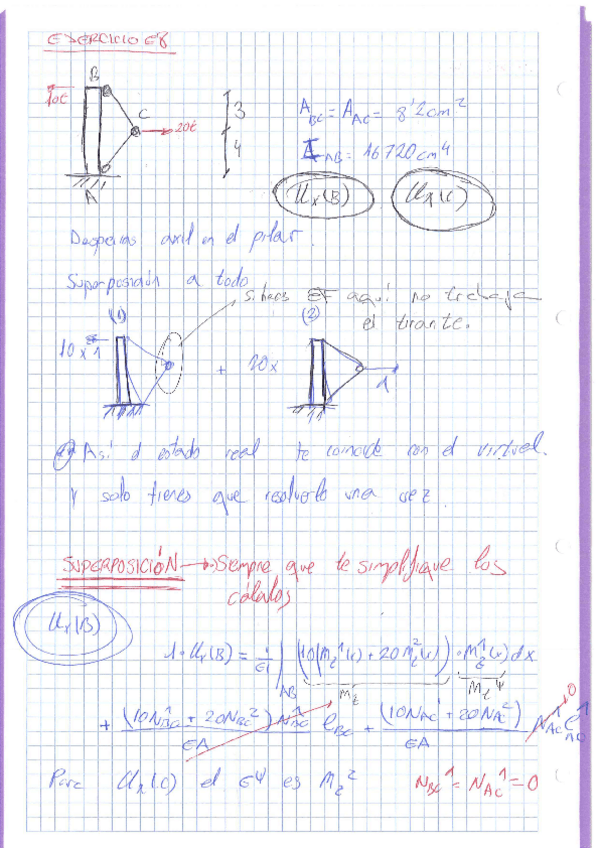 EJERCICIO E8
B
10t
C
20t
3
4
A
A_BC = A_AC = 8'2 cm²
I_AB = 16720 cm⁴
U_x(B) U_x(C)
Desprecias axil en el pilar.
Superposición a todo
si haces EF aquí no trabaja
el tirante.
(1) (2)
10 x 1 + 20 x 1
Así el estado real te coincide con el virtual.
Y solo tienes que resolverlo una vez.
SUPERPOSICIÓN → Siempre que te simplifique los
cálculos
U_x(B)
1·U_x(B) = 1/EI ∫_AB (10(M_z¹(x) + 20M_z²(x)) · M_z¹(x) dx
M_z M_z^ψ
+ (10N_BC¹ + 20N_BC²) N_BC¹ / EA l_BC + (10N_AC¹ + 20N_AC²) / EA N_AC¹ l_AC 0
Para U_x(C) el E^ψ es M_z² N_BC¹ = N_AC¹ = 0